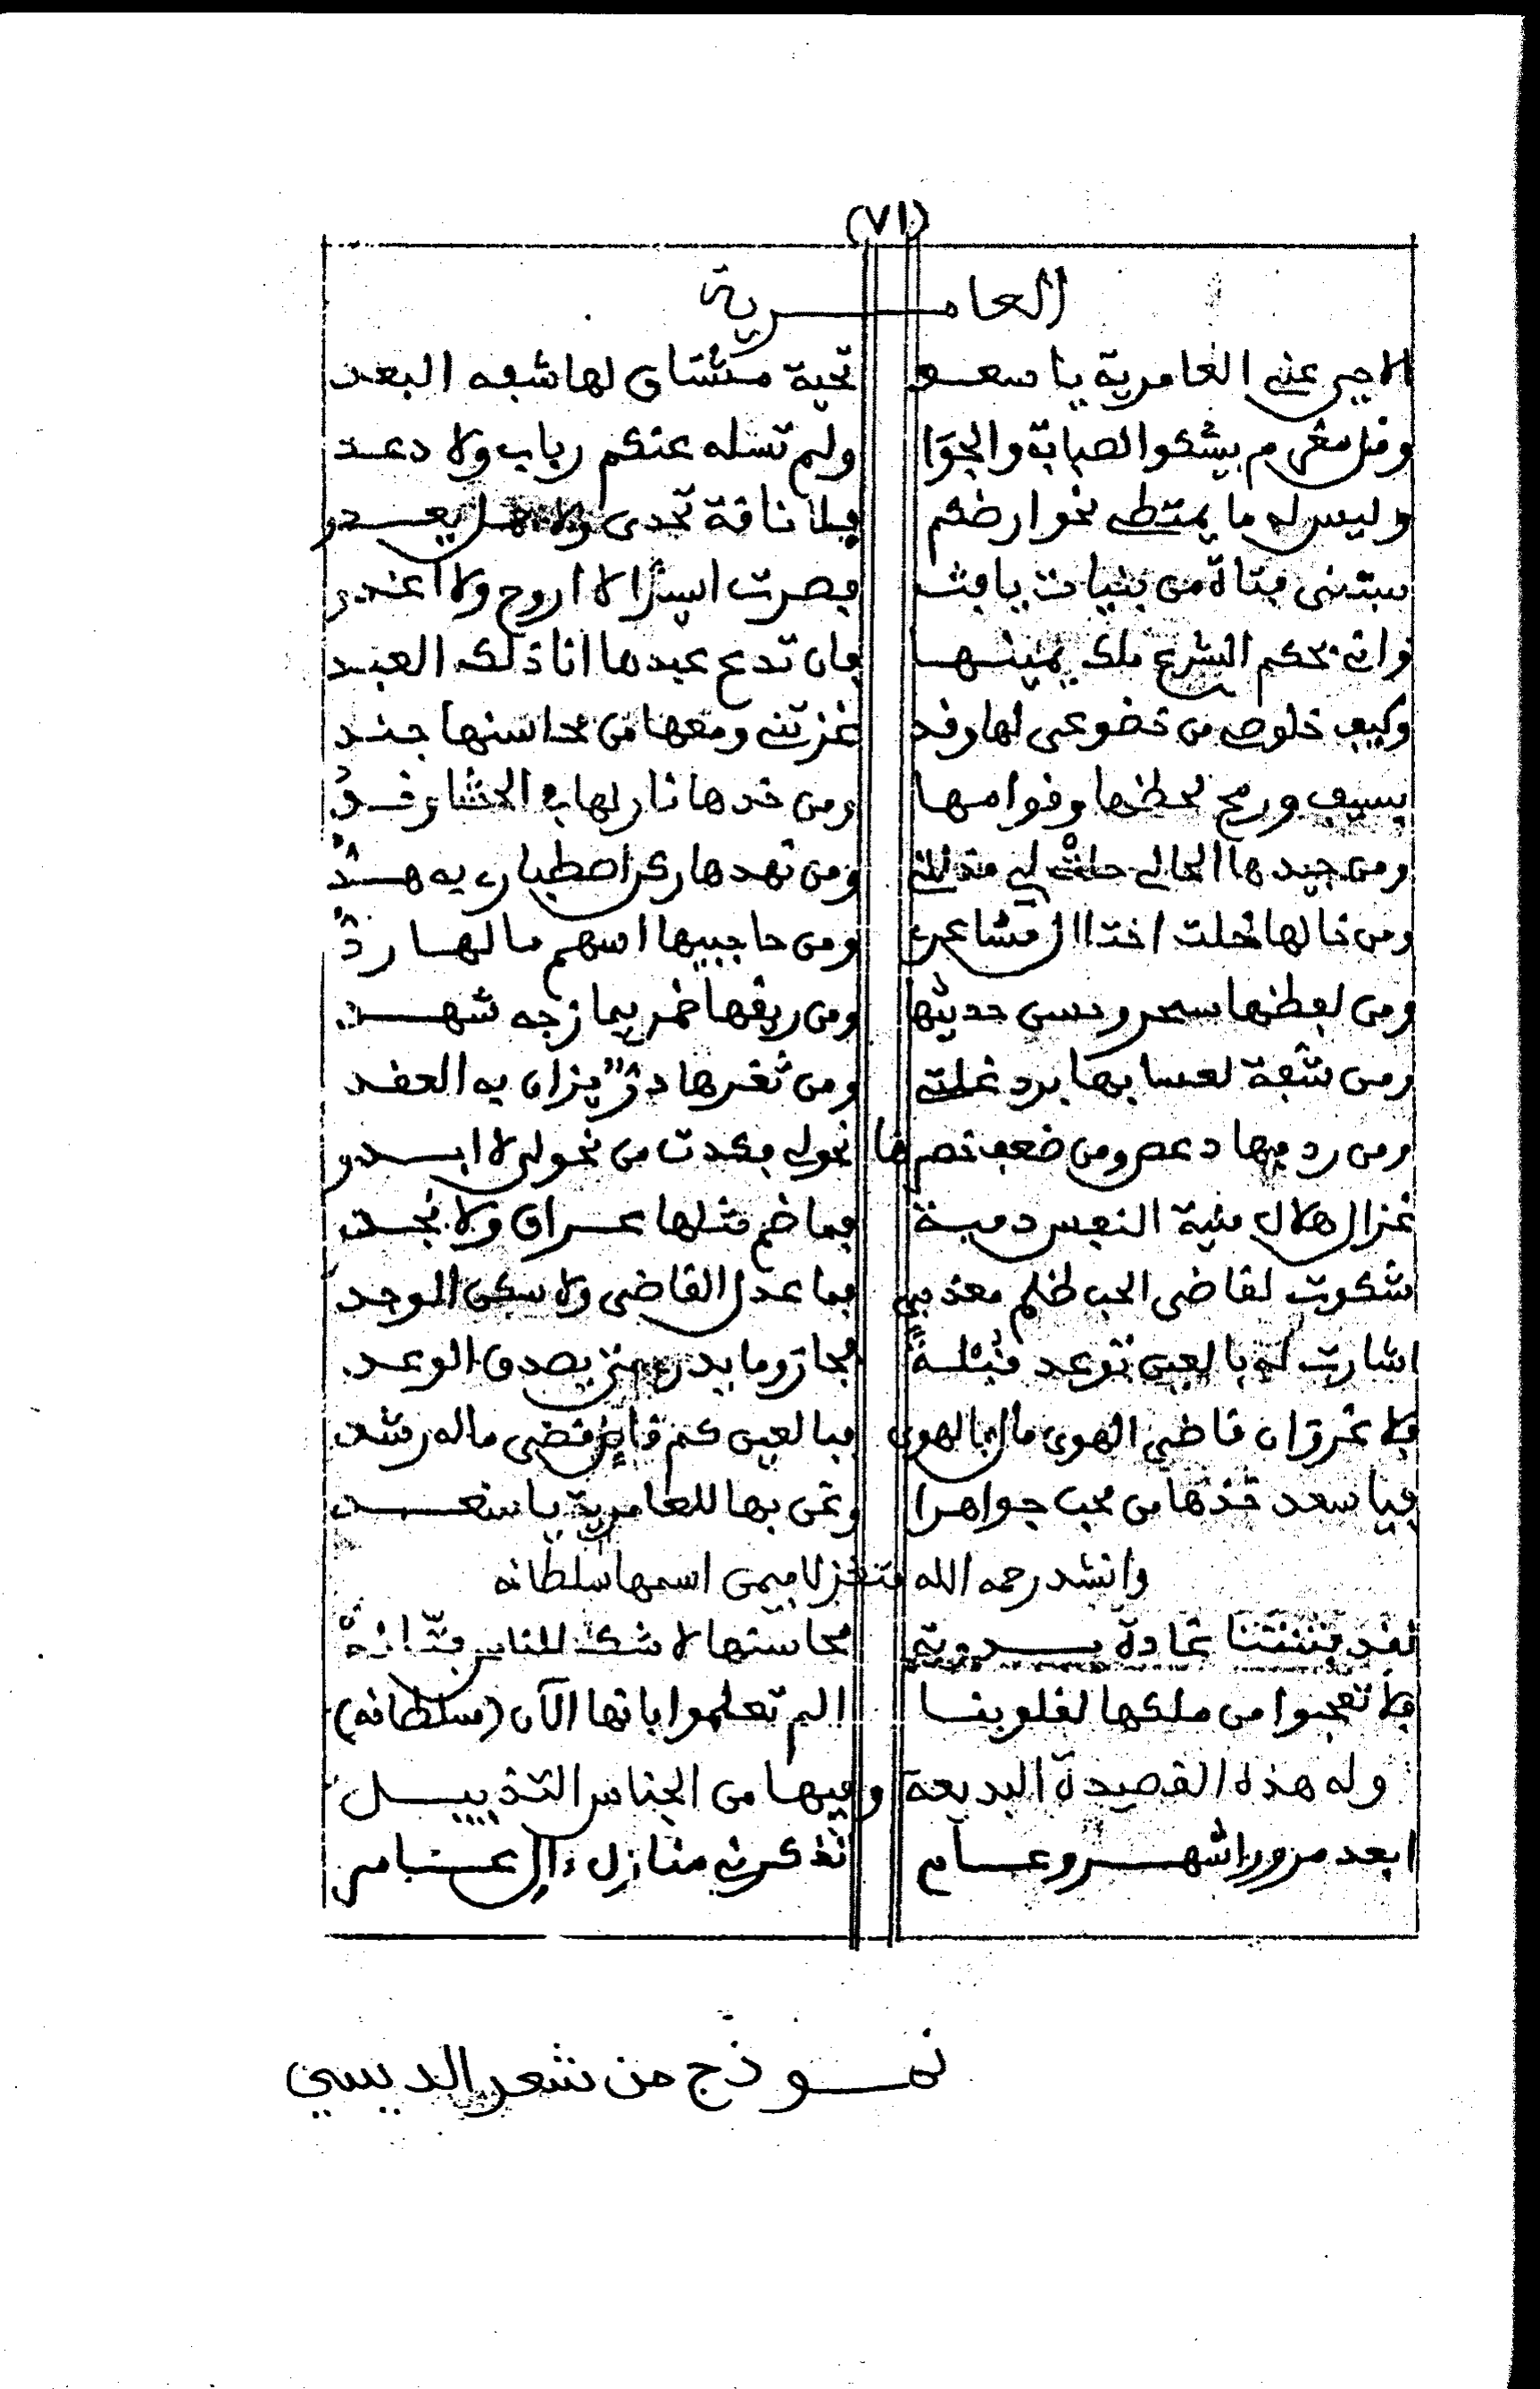 (٧١)
العامرية
الا حي عني العامرية يا سعد تحية مشتاق لها شفه البعد
وقل مغرم يشكوا الصبابة والجوا ولم تسله عنكم رباب ولا دعد
وليس له ما يمتطي نحو ارضكم فلا ناقة تحدى ولا يعدو
سبتني فتاة من بنيات يافث فصرت اسيرا لا اروح ولا اغدو
واني بحكم الشرع ملك يمينها فان تدع عبدها انا ذلك العبد
وكيف خلوصي من خضوعي لها وقد غزتني ومعها من محاسنها جند
بسيف ورمح لحظها وقوامها ومن خدها نار لها في الحشا وقد
ومن جيدها الحالي حلت لي مذلتي ومن نهدها ركن اصطباري به هد
ومن خالها نحلت اختال مشاعري ومن حاجبيها اسهم ما لها رد
ومن لفظها سحر وحسن حديثها ومن ريقها خمر يمازجه شهد
ومن شفة لعسا بها برد غلتي ومن ثغرها در يزان به العقد
ومن ردفيها دعص ومن ضعف خصرها نحولي فكدت من نحولي لا ابدو
غزال هلال منية النفس دمية فما ضم مثلها عراق ولا نجد
شكوت لقاضي الحب ظلم معذبي فما عدل القاضي ولا سكن الوجد
اشارت له بالعين توعد قبلة فجار وما يدري متى يصدق الوعد
فلا غرو ان قاضي الهوى مال بالهوى فبالعين كم قاض قضى ماله رشد
فيا سعد خذها من محب جواهرا وغن بها للعامرية يا سعد
وانشد رحمه الله متغزلا فيمن اسمها سلطانه
لقد فتنتنا غادة بدوية محاسنها لا شك للناس فتانة
فلا تعجبوا من ملكها لقلوبنا الم تعلموا بانها الآن (سلطانه)
وله هذه القصيدة البديعة وفيها من الجناس التذييل
ابعد مرور اشهر وعام تذكرني منازل ءال عامر
نموذج من شعر الديسي